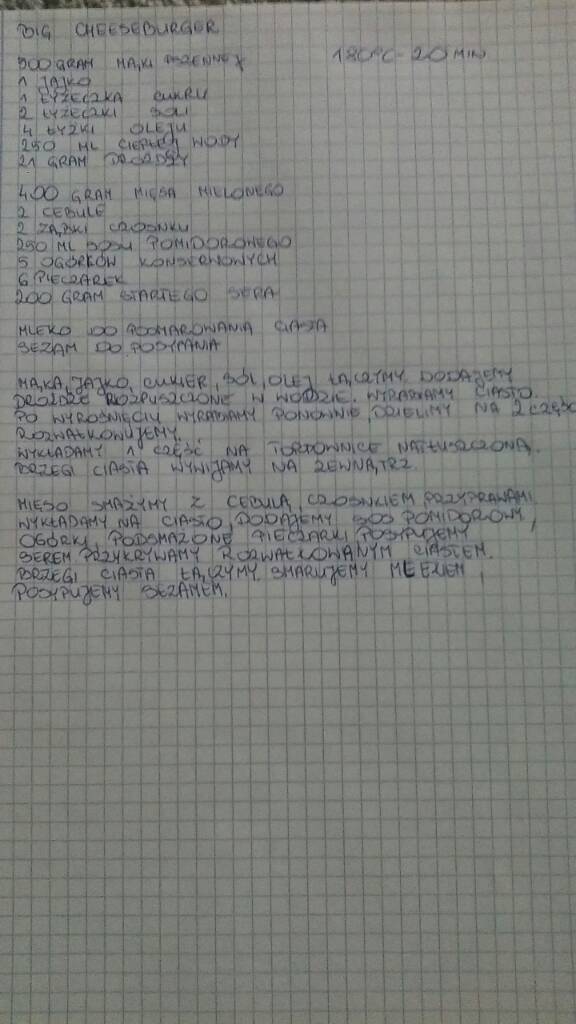 BIG CHEESEBURGER
500 GRAM MĄKI PSZENNEJ 180°C - 20 MIN
1 JAJKO
1 ŁYŻECZKA CUKRU
2 ŁYŻECZKI SOLI
4 ŁYŻKI OLEJU
250 ML CIEPŁEJ WODY
21 GRAM DROŻDŻY
400 GRAM MIĘSA MIELONEGO
2 CEBULE
2 ZĄBKI CZOSNKU
250 ML SOSU POMIDOROWEGO
5 OGÓRKÓW KONSERWOWYCH
6 PIECZAREK
200 GRAM STARTEGO SERA
MLEKO DO POSMAROWANIA CIASTA
SEZAM DO POSYPANIA
MĄKA, JAJKO, CUKIER, SÓL, OLEJ ŁĄCZYMY DODAJEMY
DROŻDŻE ROZPUSZCZONE W WODZIE. WYRABIAMY CIASTO.
PO WYROŚNIĘCIU WYRABIAMY PONOWNIE, DZIELIMY NA 2 CZĘŚCI
ROZWAŁKOWUJEMY.
WYKŁADAMY 1 CZĘŚĆ NA TORTOWNICE NATŁUSZCZONĄ,
BRZEGI CIASTA WYWIJAMY NA ZEWNĄTRZ.
MIĘSO SMAŻYMY Z CEBULĄ, CZOSNKIEM, PRZYPRAWAMI
WYKŁADAMY NA CIASTO, DODAJEMY SOS POMIDOROWY,
OGÓRKI, PODSMAŻONE PIECZARKI, POSYPUJEMY
SEREM PRZYKRYWAMY ROZWAŁKOWANYM CIASTEM.
BRZEGI CIASTA ŁĄCZYMY, SMARUJEMY MLEKIEM,
POSYPUJEMY SEZAMEM.